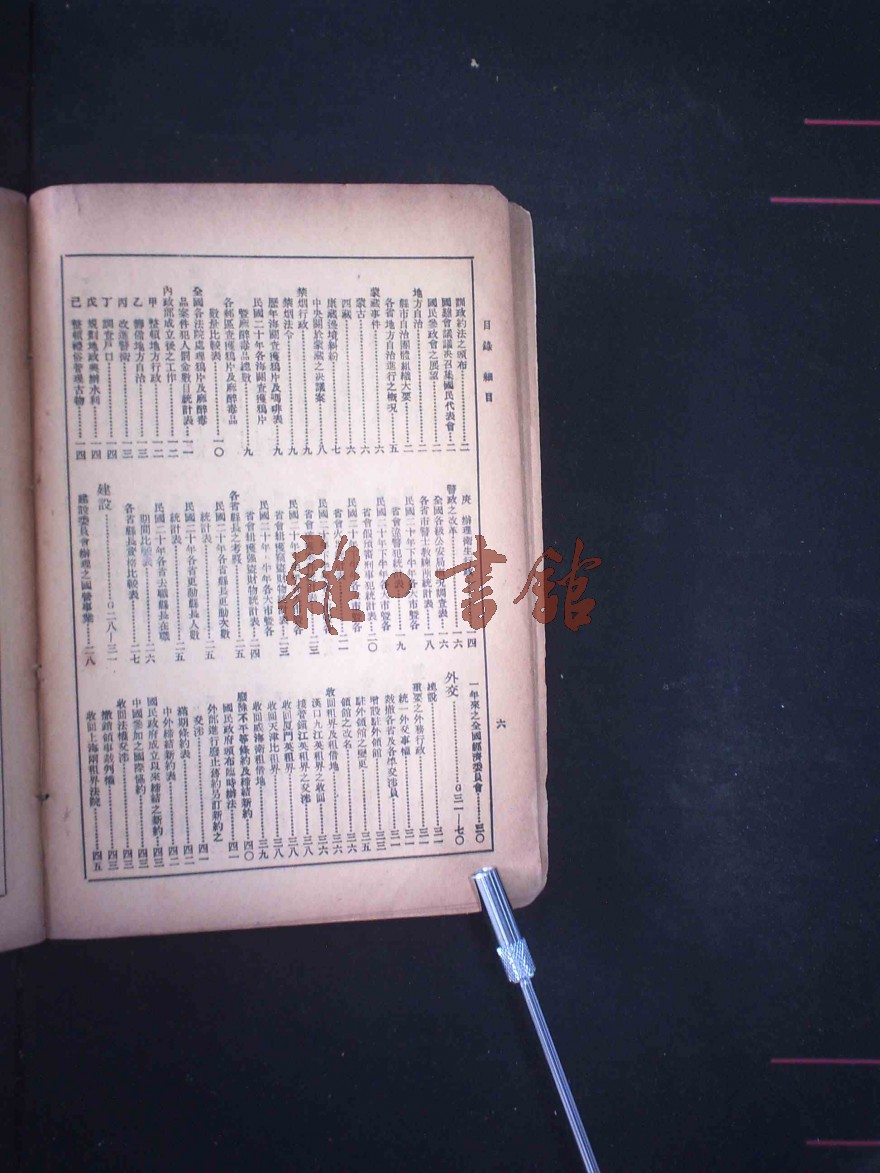 目錄 細目
六
訓政約法之頒布……二
國難會議議決召集國民代表會……二
國民參政會之展望……二
地方自治……二
縣市自治團體組織大要……二
各省地方自治進行之概況……五
蒙藏事件……六
蒙古……六
西藏……六
康藏邊境糾紛……七
中央關於蒙藏之決議案……八
禁烟行政……九
禁烟法令……九
歷年海關查獲鴉片及嗎啡表……九
民國二十年各海關查獲鴉片
暨麻醉毒品總數……九
各郵區查獲鴉片及麻醉毒品
數量比較表……一〇
全國各法院處理鴉片及麻醉毒
品案件犯人罰金數目統計表……一一
內政部成立後之工作……一二
甲 整頓地方行政……一二
乙 籌備地方自治……一三
丙 改進警衛……一三
丁 調查戶口……一四
戊 規劃地政與辦水利……一四
己 整頓禮俗管理古物……一四
庚 辦理衛生行政……一四
警政之改革……一六
全國各級公安局概況調查表……一六
各省市警士教練所統計表……一八
民國二十年下半年各大市暨各
省會違警犯統計表……一九
民國二十年下半年各大市暨各
省會假預審刑事犯統計表……二〇
民國二十年
省會
二一
民國二十年
省會
二三
民國二十年
省會
二三
民國二十年下半年各大市暨各
省會組獲強盜財物統計表……二四
各省縣長之考核……二五
民國二十年各省縣長更動次數
統計表……二五
民國二十年各省更動縣長人數
統計表……二五
民國二十年各省去職縣長在職
期間比較表……二六
各省縣長資格比較表……二七
建設……G二八—三一
建設委員會辦理之國營事業……二八
一年來之全國經濟委員會……三〇
外交……G三一—七〇
總說……三一
重要之外務行政……三一
統一外交事權……三一
裁撤各省及各埠交涉員……三一
增設駐外領館……三三
駐外領館之變更……三五
領館之改名……三六
收回租界及租借地……三六
漢口九江英租界之收回……三六
接管鎮江英租界之交涉……三八
收回廈門英租界……三八
收回天津比租界……三八
收回威海衛租借地……三九
廢除不平等條約及締結新約……四〇
國民政府頒布臨時辦法……四一
外部進行廢止舊約另訂新約之
交涉……四一
滿期條約表……四二
中外締結新約表……四二
國民政府成立以來締結之新約……四三
中國參加之國際協約……四三
收回法權交涉……四三
撤銷領事裁判權……四三
收回上海兩租界法院……四五
雜·書館